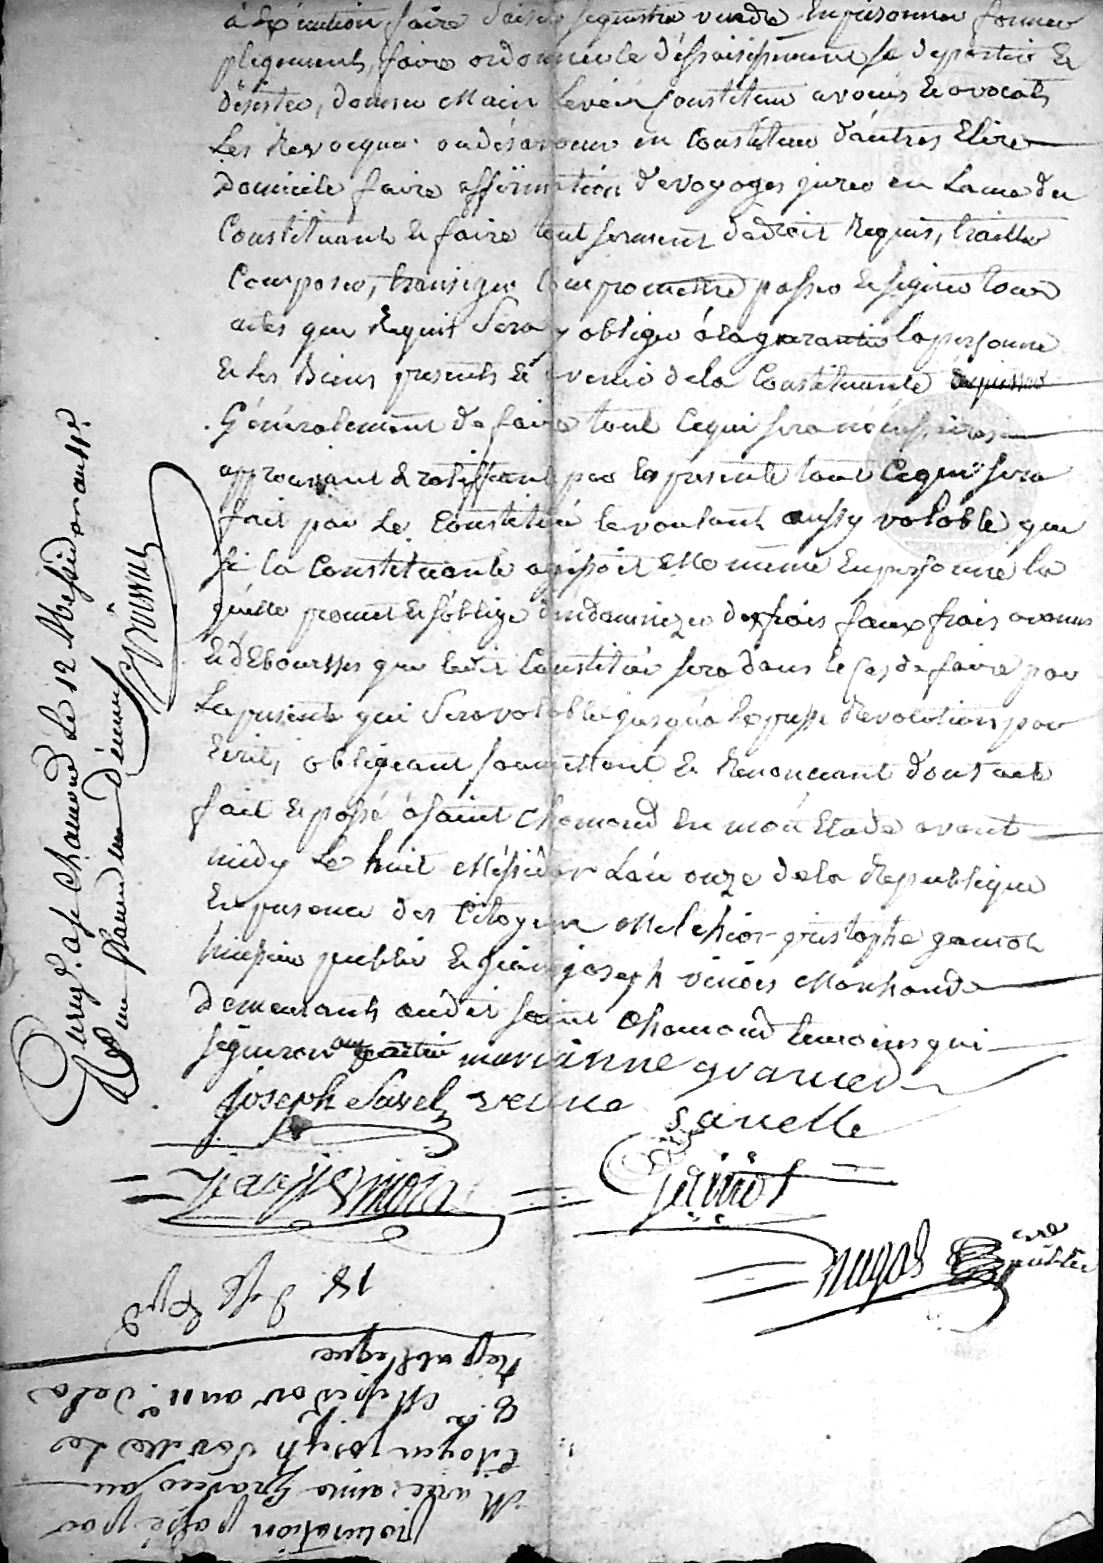 à Exécution, faire saisir sequestre vendre Enprisonner former
faire ordonner le déssaisissement se departir Et
désister, donner Main levée Constituer avoués Et avocats
Les Revocquer ou désavouer en Constituer d'autres Elire
Domicile faire affirmation de voyages jurer en Lame du
Constituant Et faire tout serment de droit Requis, traitter
Composer, transiger Compromettre passer Et signer tous
actes que Requis Sera y obliger à la garantie la personne
Et les Biens presents Et avenir de la Constituante
Généralement de faire tout Cequi sera nécessaire
approuvant Et ratiffiant par la presente tout Cequi sera
fait par Le Constitué le voulant aussy valable que
si la Constituante agissoit Elle même En personne la
quelle promet Et s'oblige d'indamnizer des frois faux frais
Et dEboursses que ledit Constitué sera dans le Cas de faire par
La presente qui Sera valable jusqu'à Expresse Revocation par
Ecrit, obligeant soumettant Et Renonceant dont acte
fait Et passé à saint Chamond En mon Etude avant
midy Le huit Méssidor Lan onze de la Republique
En presence des Citoyens Melchior Cristophe gamot
huissier public Et jean joseph Marchand
demeurants audit saint Chamond temoins qui
signeron marianne granier
joseph Savel veuve
savelle
Gamot
public
Enreg. a St Chamond Le 12 Messidor an onze
Reçu
Procuration passé par
Marie anne Granier au
Citoyen joseph Le
8 Messidor an 11 de la
Republique
18